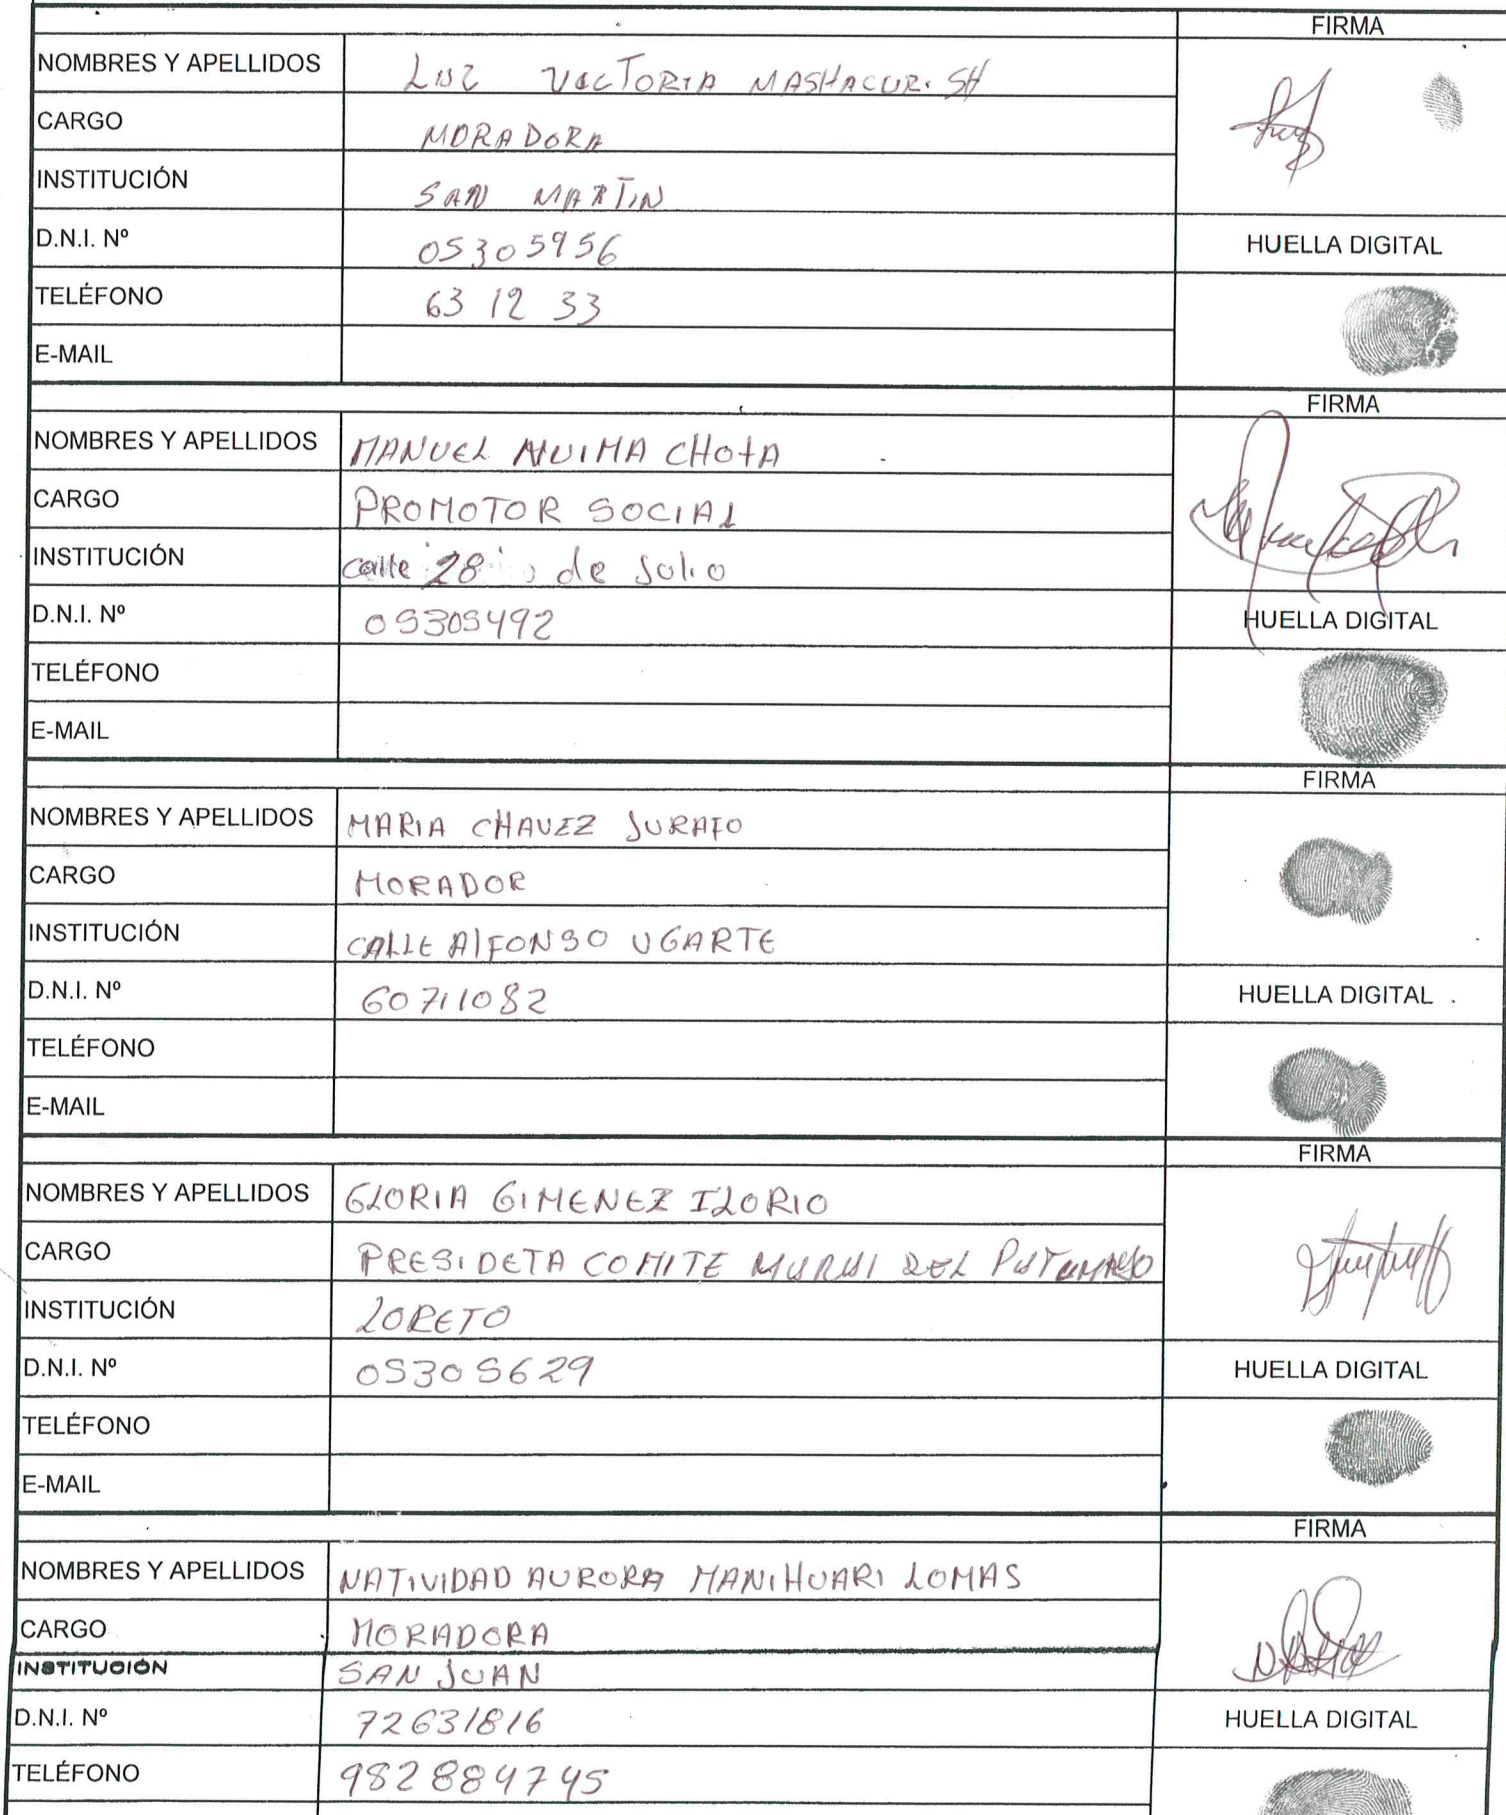 FIRMA
NOMBRES Y APELLIDOS LUZ VICTORIA MASHACURI SH
CARGO MORADORA
INSTITUCIÓN SAN MARTIN
D.N.I. Nº 05305956 HUELLA DIGITAL
TELÉFONO 63 12 33
E-MAIL
FIRMA
NOMBRES Y APELLIDOS MANUEL CHOTA
CARGO PROMOTOR SOCIAL
INSTITUCIÓN calle 28 de Julio
D.N.I. Nº 05305492 HUELLA DIGITAL
TELÉFONO
E-MAIL
FIRMA
NOMBRES Y APELLIDOS MARIA CHAVEZ
CARGO MORADOR
INSTITUCIÓN CALLE AlFONSO UGARTE
D.N.I. Nº 60711082 HUELLA DIGITAL
TELÉFONO
E-MAIL
FIRMA
NOMBRES Y APELLIDOS GLORIA GIMENEZ ILORIO
CARGO PRESIDETA COMITE MURUI DEL PUTUMAYO
INSTITUCIÓN LORETO
D.N.I. Nº 05305629 HUELLA DIGITAL
TELÉFONO
E-MAIL
FIRMA
NOMBRES Y APELLIDOS NATIVIDAD AURORA MANIHUARI LOMAS
CARGO MORADORA
INSTITUCIÓN SAN JUAN
D.N.I. Nº 72631816 HUELLA DIGITAL
TELÉFONO 982884745